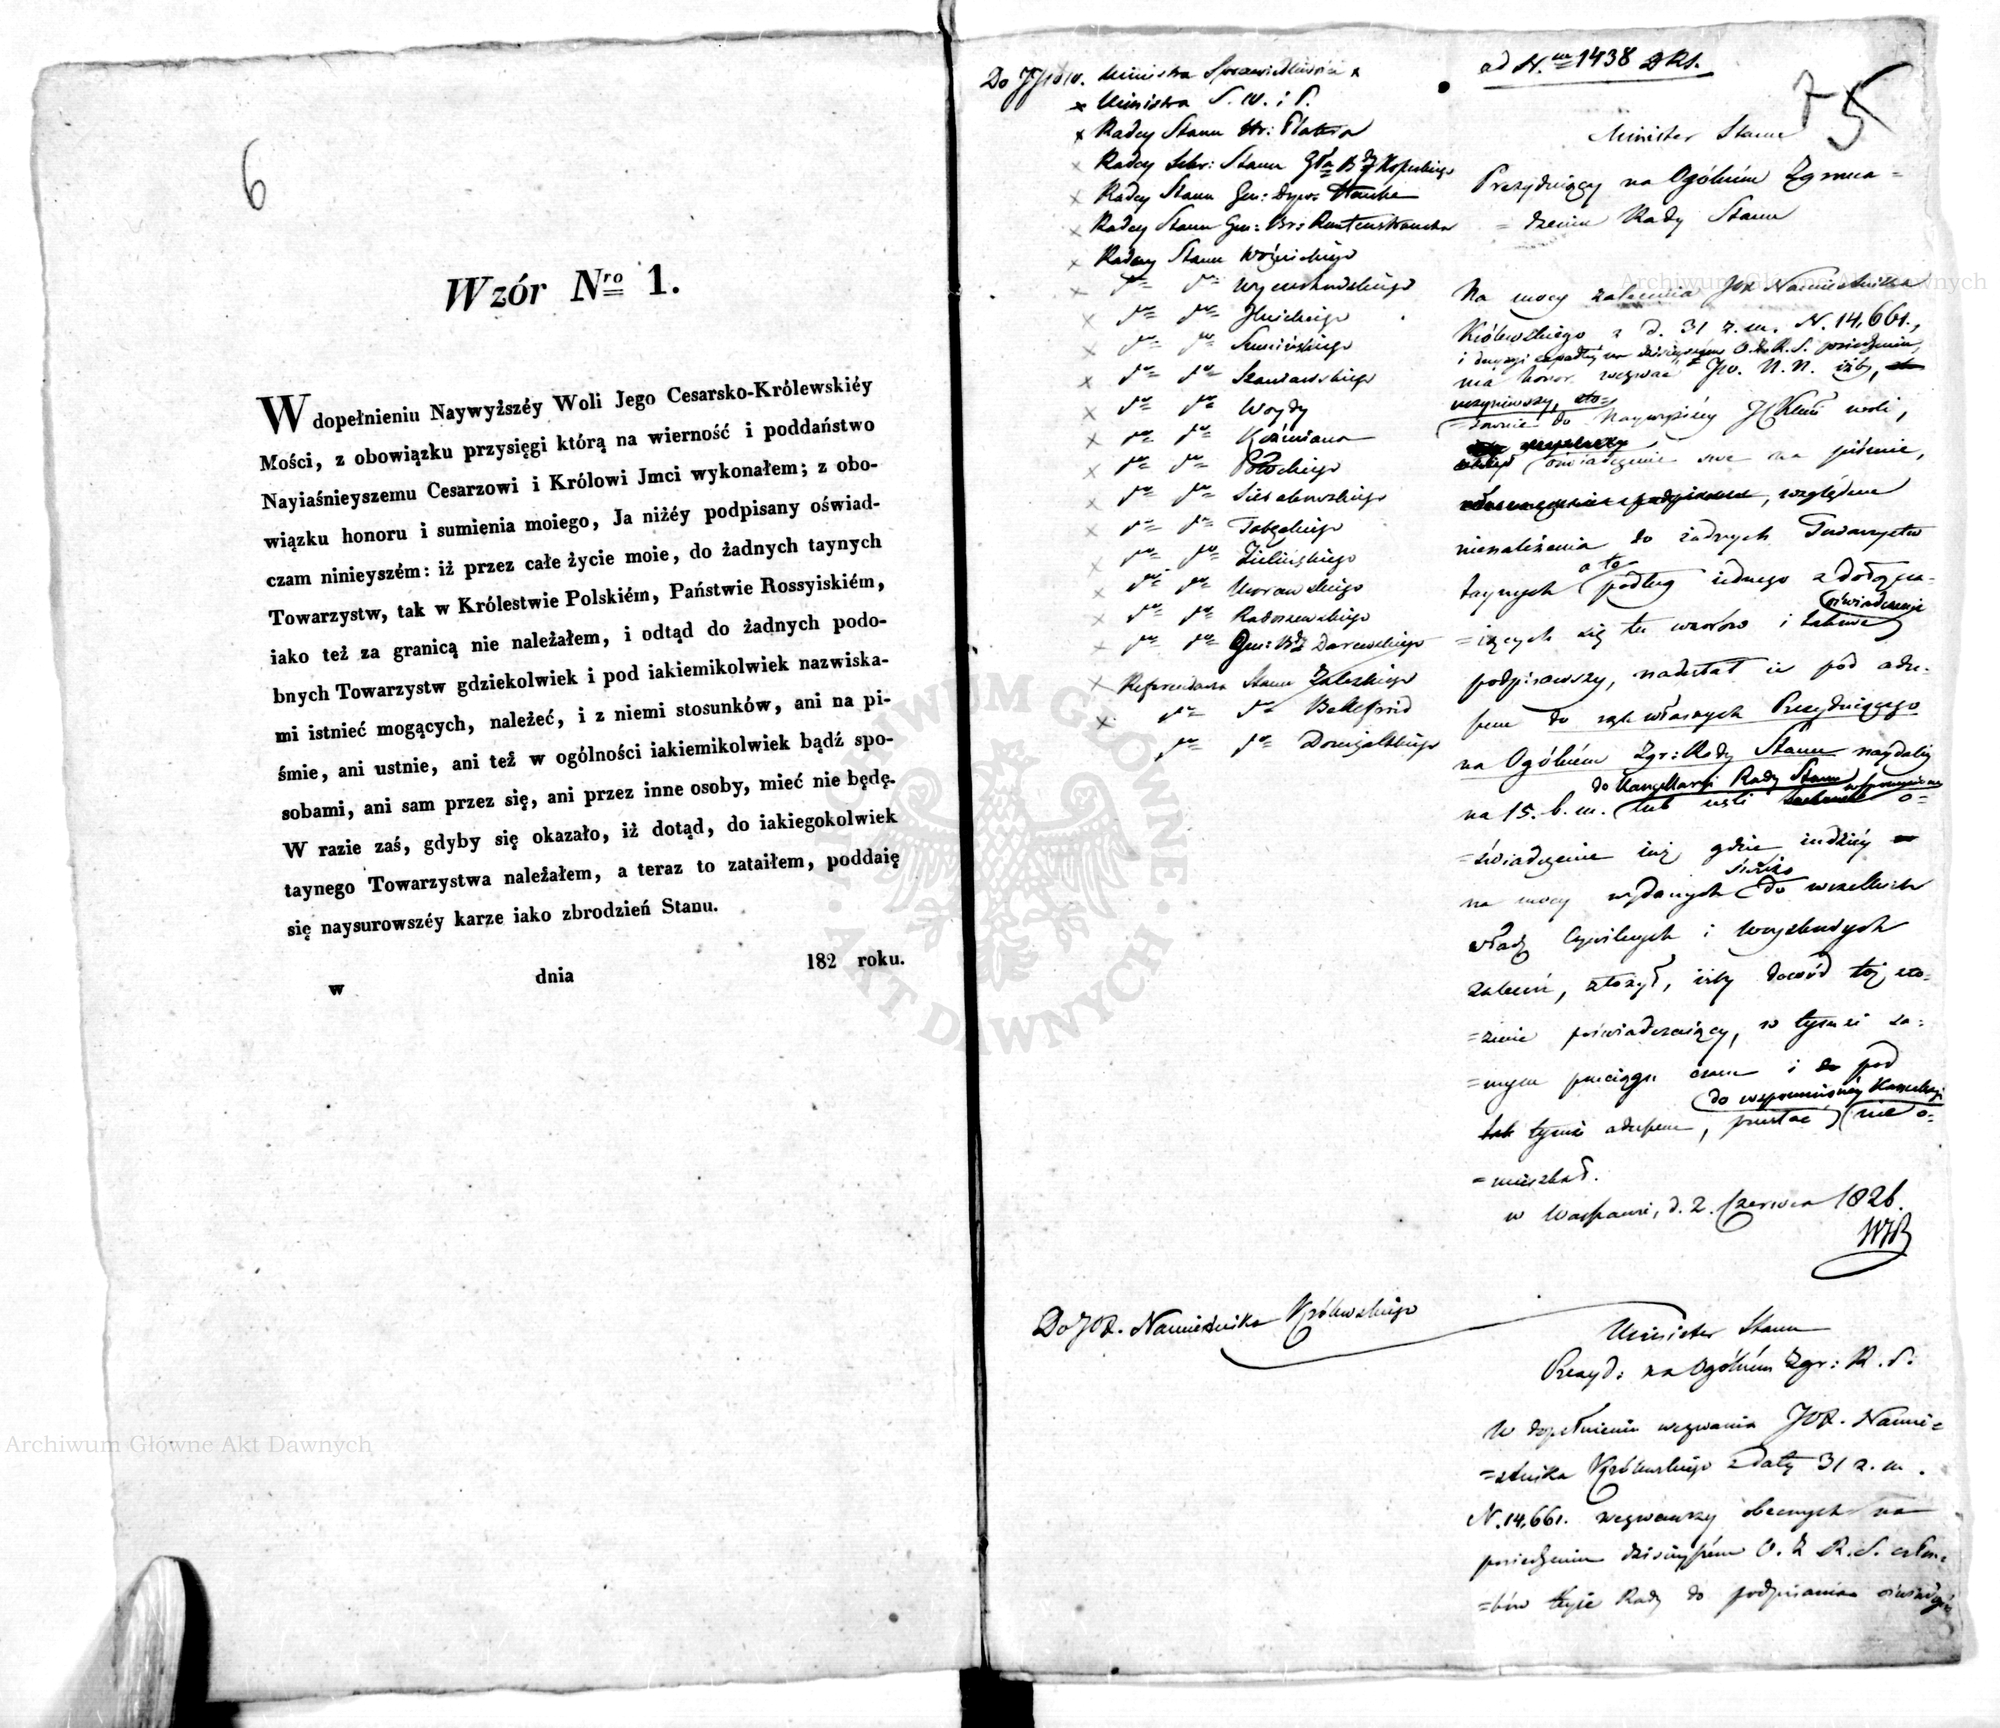 6
Wzór Nro 1.
W dopełnieniu Naywyższéy Woli Jego Cesarsko-Królewskiéy
Mości, z obowiązku przysięgi którą na wierność i poddaństwo
Nayiaśnieyszemu Cesarzowi i Królowi Jmci wykonałem; z obo-
wiązku honoru i sumienia moiego, Ja niżéy podpisany oświad-
czam ninieyszém: iż przez całe życie moie, do żadnych taynych
Towarzystw, tak w Królestwie Polskiém, Państwie Rossyiskiém,
iako też za granicą nie należałem, i odtąd do żadnych podo-
bnych Towarzystw gdziekolwiek i pod iakiemikolwiek nazwiska-
mi istnieć mogących, należeć, i z niemi stosunków, ani na pi-
śmie, ani ustnie, ani też w ogólności iakiemikolwiek bądź spo-
sobami, ani sam przez się, ani przez inne osoby, mieć nie będę.
W razie zaś, gdyby się okazało, iż dotąd, do iakiegokolwiek
taynego Towarzystwa należałem, a teraz to zataiłem, poddaię
się naysurowszéy karze iako zbrodzień Stanu.
w dnia 182 roku.
Ministra Sprawiedliwości
Ministra S. W. i P.
Radcy Stanu Hr: Platera
Radcy Sekr: Stanu
Radcy Stanu Gen: Dyw: Hauke
Radcy Stanu Gen: Br: Rautenstraucha
Radcy Stanu Woźnickiego
Wyczechowskiego
Szaniawskiego
Woydy
Koźmiana
Potockiego
Zielińskiego
Morawskiego
Radoszewskiego
Gen: Darewskiego
Referendarza Stanu Zaleskiego
ad N. 1438
75
Minister Stanu
Prezyduiący na Ogólném Zgroma=
=dzeniu Rady Stanu
Na mocy zalecenia JOX Namiestnika
Królewskiego z d. 31 z. m. N. 14,661.,
ma honor wezwać JW. N. N. iżby,
do Naywyższéy woli,
oświadczenie swe na piśmie,
względem
nienależenia do żadnych Towarzystw
taynych a to podług iednego z dołącza-
=iących się tu wzorów i
oświadczenie
podpisawszy, nadesłał ie pod adre-
sem do rąk własnych Prezyduiącego
na Ogólném Zgr: Rady Stanu naydaléy
do Kancellaryi Rady Stanu
na 15. b. m. lub ieśli o=
=świadczenie iuż gdzie indziéy
na mocy wydanych do wszelkich
władz Cywilnych i Woyskowych
zaleceń, złożył, iżby dowód téj zło=
=żenie poświadczaiący, w tymże sa=
=mym przeciągu czasu i pod
do wspomnionéy Kancellaryi
tymże adresem, przesłać nie o=
=mieszkał.
w Warszawie, d. 2. Czerwca 1826.
Do JOX. Namiestnika Królewskiego
Minister Stanu
Prezyd: na Ogólném Zgr: R. S.
W dopełnieniu wezwania JOX. Namie=
=stnika Królewskiego z daty 31 z. m.
N. 14,661. wezwawszy obecnych na
posiedzeniu dzisieyszém O. Z. R. S. człon=
=ków teyże Rady do podpisania oświadczeń
Archiwum Główne Akt Dawnych
Archiwum Główne Akt Dawnych
ARCHIWUM GŁÓWNE
AKT DAWNYCH